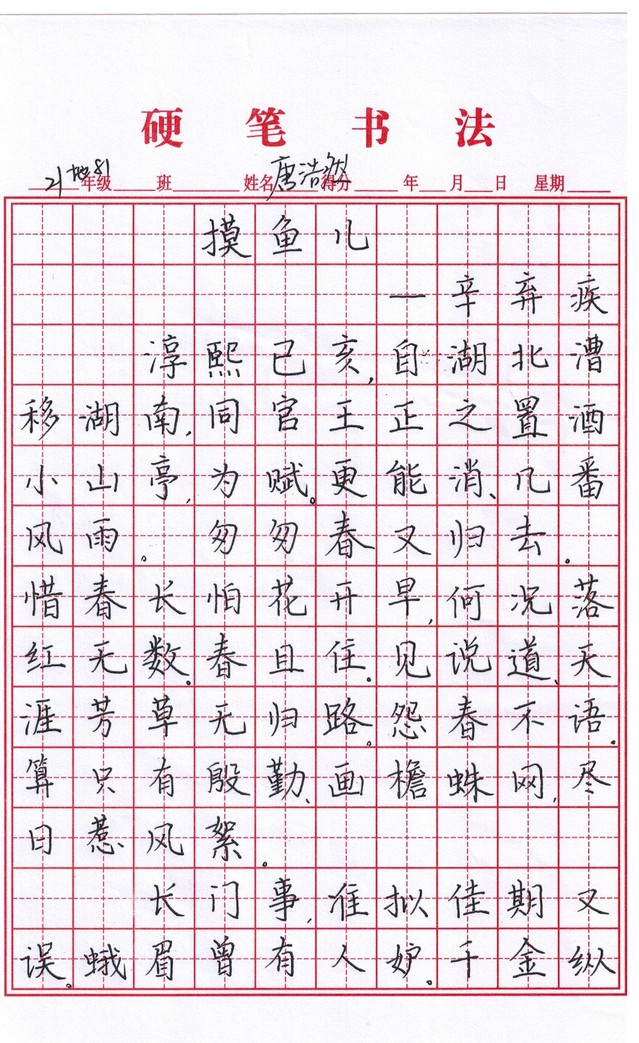 硬笔书法
21地81年级 班 姓名唐浩然得分 年 月 日 星期
摸鱼儿
一辛弃疾
淳熙已亥,自湖北漕
移湖南,同官王正之置酒
小山亭,为赋。更能消、几番
风雨。匆匆春又归去。
惜春长怕花开早,何况落
红无数。春且住。见说道、天
涯芳草无归路。怨春不语.
算只有殷勤、画檐蛛网,尽
日惹风絮。
长门事,准拟佳期又
误。蛾眉曾有人妒。千金纵